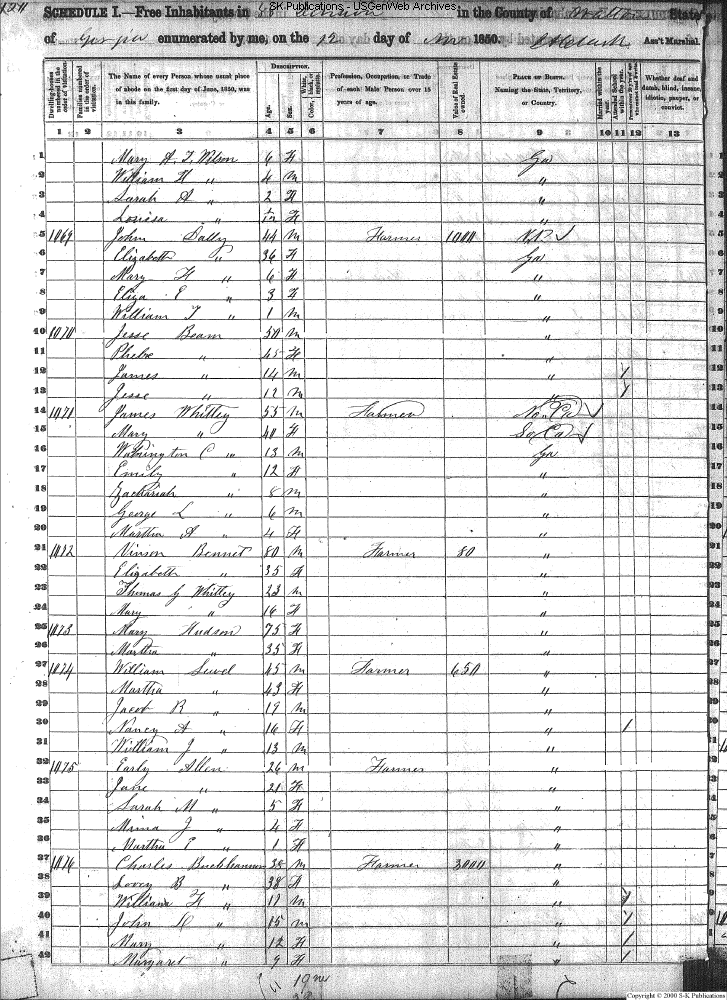 SK Publications - USGenWeb Archives
SCHEDULE I.—Free Inhabitants in Division in the County of Walton State
of Georgia enumerated by me, on the 12 day of Nov 1850. Ass't Marshal.
Dwelling-houses numbered in the order of visitation.
Families numbered in the order of visitation.
The Name of every Person whose usual place of abode on the first day of June, 1850, was in this family.
DESCRIPTION.
Age.
Sex.
Color, White, black, or mulatto.
Profession, Occupation, or Trade of each Male Person over 15 years of age.
Value of Real Estate owned.
PLACE OF BIRTH. Naming the State, Territory, or Country.
Married within the year.
Attended School within the year.
Whether deaf and dumb, blind, insane, idiotic, pauper, or convict.
1 2 3 4 5 6 7 8 9 10 11 12 13
1 Mary A. T. Wilson 6 F Ga
2 William H " 4 M "
3 Sarah A " 2 F "
4 Louisa " F "
5 1069 John Dally 44 M Farmer 1000
6 Elizabeth " 36 F Ga
7 Mary F " 6 F "
8 Eliza E " 3 F "
9 William T " 1 M "
10 1070 Jesse Beam 50 M "
11 Phebe " 45 F "
12 James " 14 M " /
13 Jesse " 12 M " /
14 1071 James Whitley 55 M Farmer No. Ca
15 Mary " 40 F So Ca
16 Washington C " 13 M Ga
17 Emily " 12 F "
18 Zachariah " 8 M "
19 George L " 6 M "
20 Martha A " 4 F "
21 1072 Vinson Bennet 80 M Farmer 80 "
22 Elizabeth " 35 F "
23 Thomas G Whitley 23 M "
24 Mary " 16 F "
25 1073 Mary Hudson 75 F "
26 Martha " 35 F "
27 1074 William Sewel 45 M Farmer 650 "
28 Martha " 43 F "
29 Jacob R " 19 M "
30 Nancy A " 16 F " /
31 William J " 13 M "
32 1075 Early Allen 26 M Farmer "
33 Jane " 21 F "
34 Sarah M " 5 F "
35 Mima J " 4 F "
36 Martha E " 1 F "
37 1076 Charles Buckhannon 38 M Farmer 3000 "
38 Lovey B " 38 F "
39 William H " 17 M " /
40 John R " 15 M " /
41 Mary " 12 F " /
42 Margaret " 9 F " /
Copyright © 2000 S-K Publications